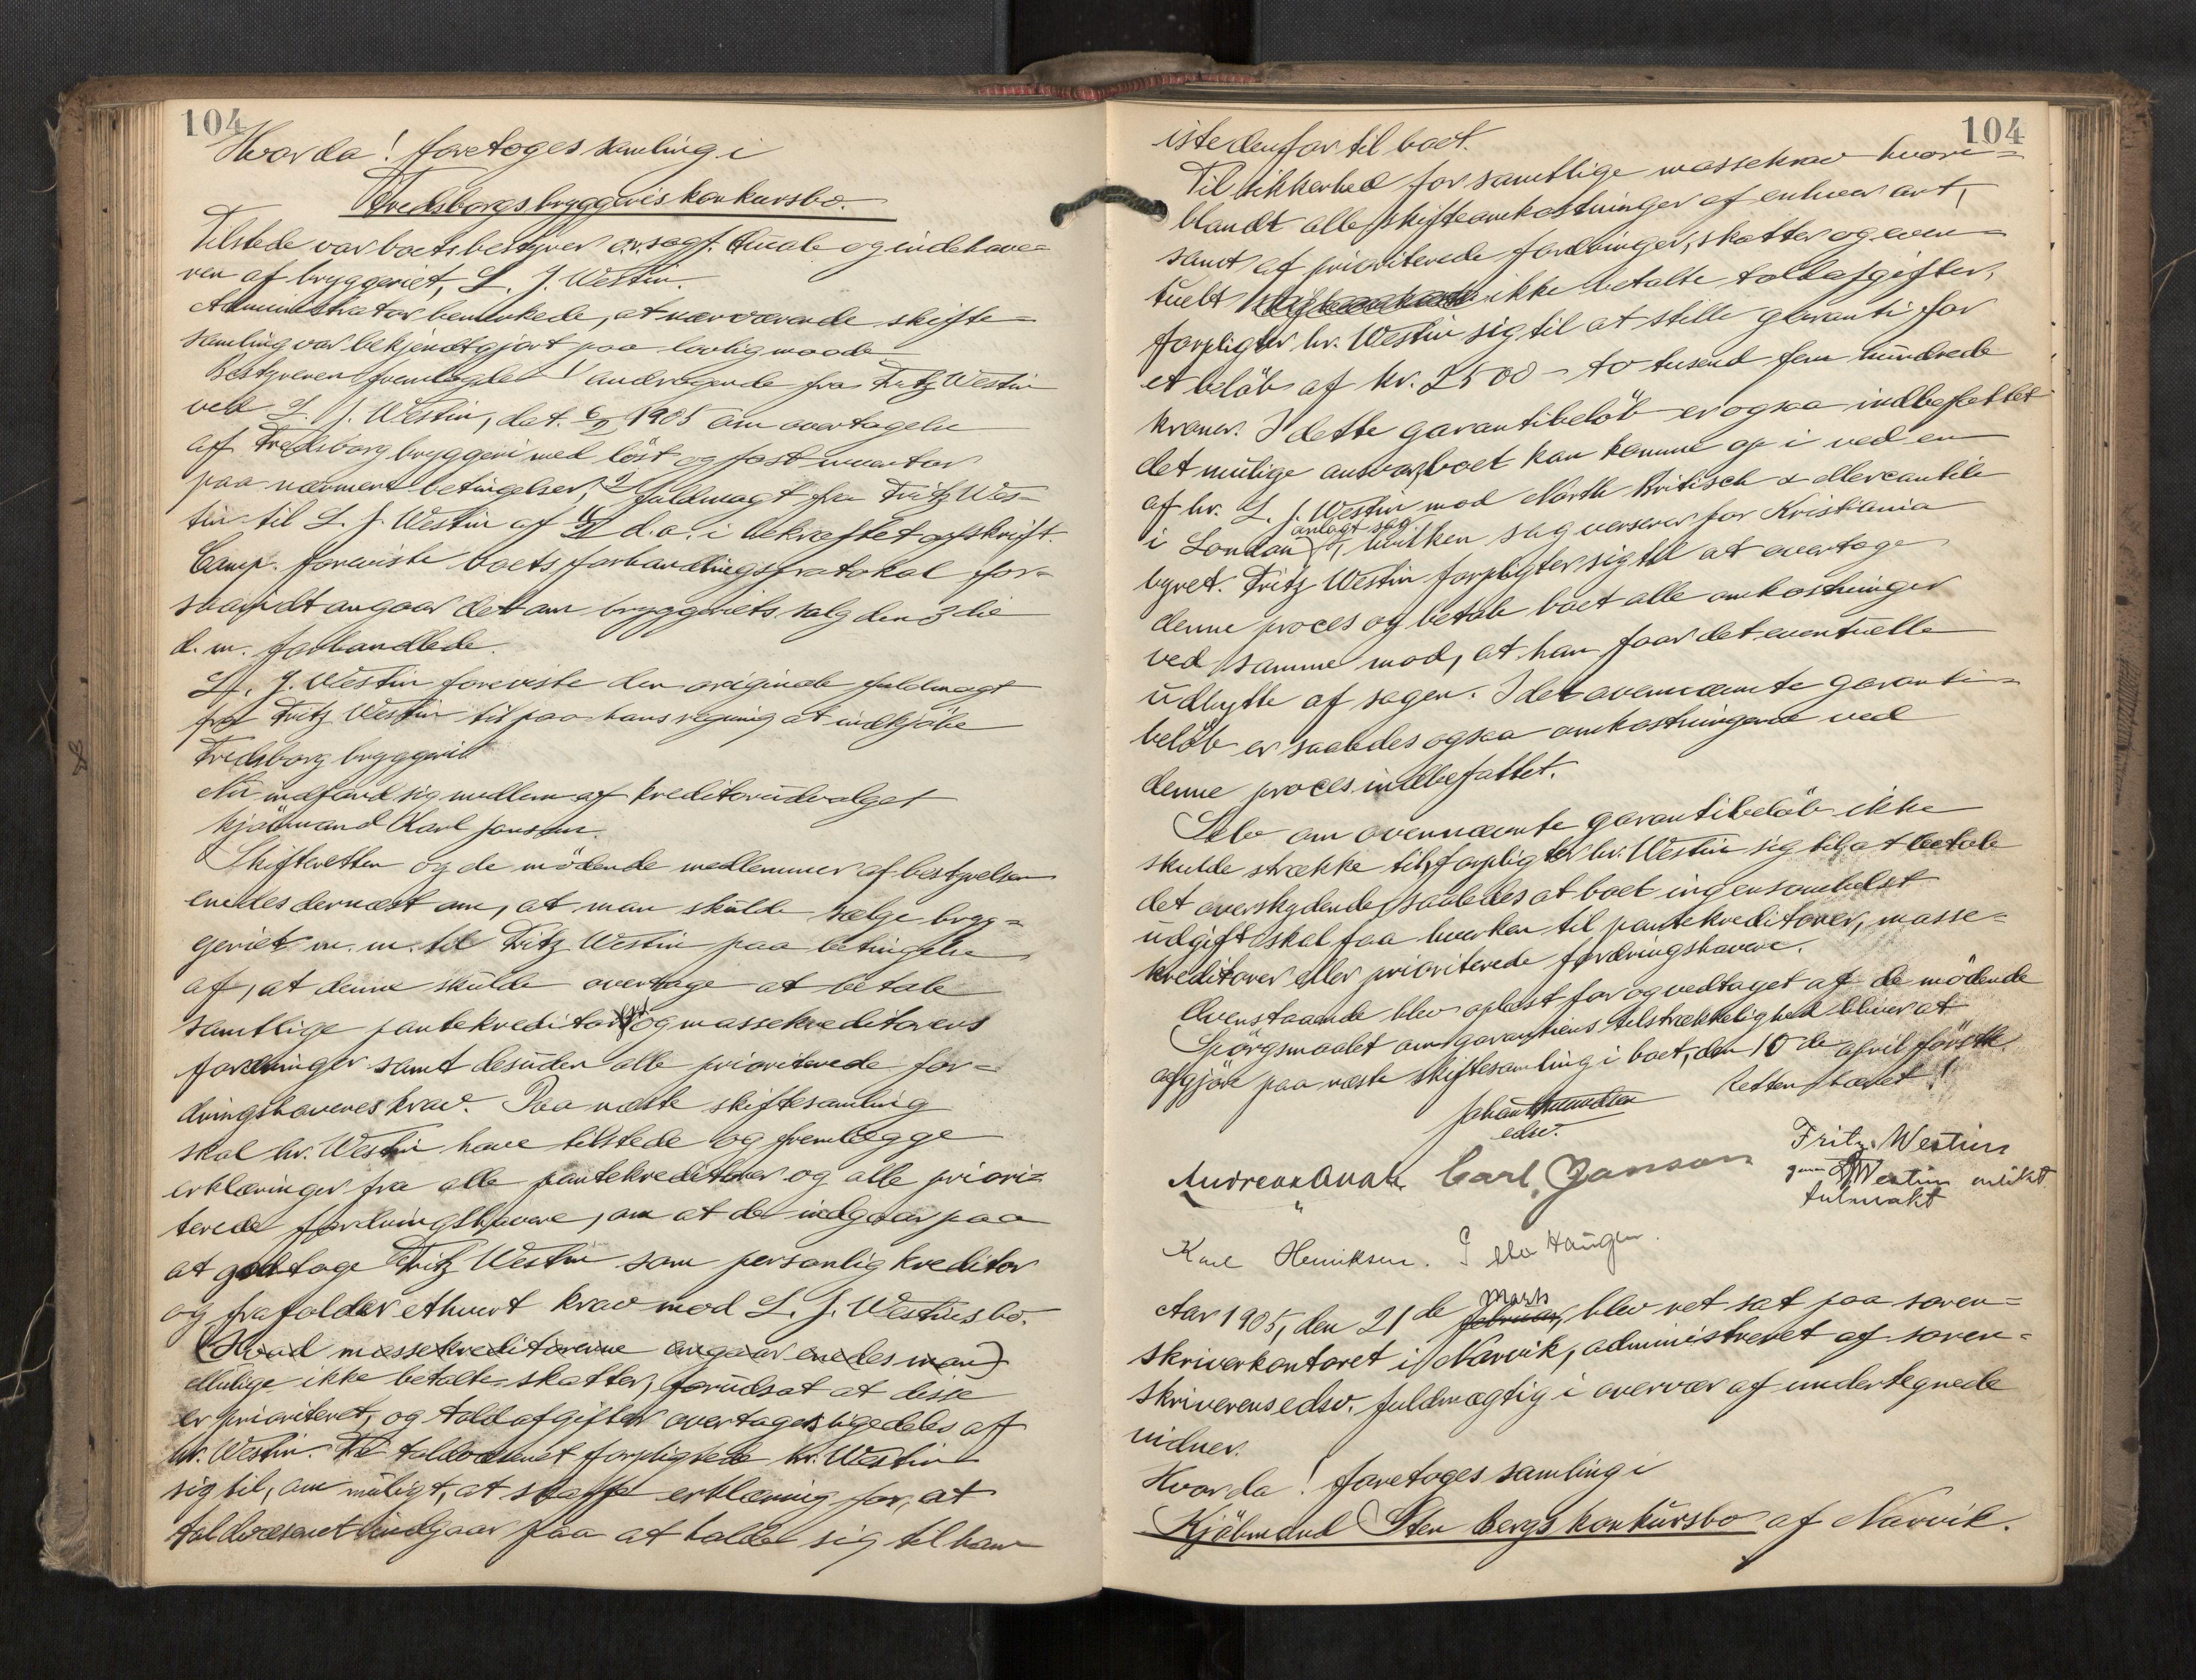 104
Hvorda! foretoges samling i
Fredsborgs bryggeris konkursbo.
Tilstede var boets bestyrer o.r.sagf. Quale og indehave=
ren af bryggeriet, L. J. Westin.
Administrator bemerkede, at nærværende skifte=
samling var bekjendtgjort paa lovlig maade.
Bestyreren fremlagde 1 andragende fra Fritz Westin
ved L. J. Westin, dat. 1905 om overtagelse
af Fredsborg bryggeri med löst og fast inventar
paa nærmere betingelser, 2) fuldmagt fra Fritz Wes=
tin til L. J. Westin af d.a. i bekræftet afskrift.
Comp. foreviste boets forhandlingsprotokol for=
saavidt angaar det om bryggeriets salg den 3die
d. m. forhandlede.
L. J. Westin foreviste den originale fuldmagt
fra Fritz Westin til paa hans regning at indkjöbe
Fredsborg bryggeri.
Nu indfand sig medlem af kreditorudvalget
kjöbmand Karl Janson.
Skifteretten og de mödende medlemmer af bestyrelsen
enedes dernæst om, at man skulde sælge bryg=
geriet m. m. til Fritz Westin paa betingelse
af, at denne skulde overtage at betale
samtlige pantekreditorers og massekreditorers
fordringer samt desuden alle prioriterede for=
dringshaveres krav. Paa næste skiftesamling
skal hr. Westin have tilstede og fremlægge
erklæringer fra alle pantekreditorer og alle priori=
terede fordringshavere, om at de indgaar paa
at godtage Fritz Westin som personlig kreditor
og frafalder ethvert krav mod L. J. Westins bo.
(Hvad massekreditorerne angaar enedes man)
Mulige ikke betalte skatter, forudsat at disse
er prioriteret, og toldafgifter overtages ligedeles af
hr. Westin. Til toldvæsenet forpligtede hr. Westin
sig til, om muligt, at skaffe erklæring for, at
toldvæsenet indgaar paa at holde sig til ham
104
istedenfor til boet.
Til sikkerhed for samtlige massekrav hvori=
blandt alle skifteomkostninger af enhver art,
samt af prioriterede fordringer, skatter og even=
tuelt ikke betalte toldafgifter,
forpligter hr. Westin sig til at stille garanti for
et belöb af kr. 2500 - to tusend fem hundrede
kroner. I dette garantibelöb er ogsaa indbefattet
det mulige ansvar, boet kan komme op i ved en
af hr. L. J. Westin mod North Britisch & Mercantile
i London anlagt sag, hvilken sag verserer for Kristiania
byret. Fritz Westin forpligter sig til at overtage
denne proces og betale boet alle omkostninger
ved samme mod, at han faar det eventuelle
udbytte af sagen. I det ovennævnte garanti=
belöb er saaledes ogsaa omkostningerne ved
denne proces indbefattet.
Selv om ovennævnte garantibelöb ikke
skulde strække til, forpligter hr. Westin sig til at betale
det overskydende, saaledes at boet ingensomhelst
udgift skal faa hverken til pantekreditorer, masse=
kreditorer eller prioriterede fordringshavere.
Ovenstaaende blev oplæst for og vedtaget af de mödende
Spörgsmaalet om garantiens tilstrækkelighed bliver at
afgjöre paa næste skiftesamling i boet, den 10de april förstk.
Retten hævet!
edsv.
Andreas Quale Carl. Janson Fritz Westin
gem L J Westin enlikt
fulmakt
Karl Henriksen. I Mo Haugen.
Aar 1905, den 21de februar, mars blev ret sat paa soren=
skriverkontoret i Narvik, administreret af soren=
skriverens edsv. fuldmægtig i overvær af undertegnede
vidner.
Hvorda! foretoges samling i
Kjöbmand Sten Bergs konkursbo af Narvik.